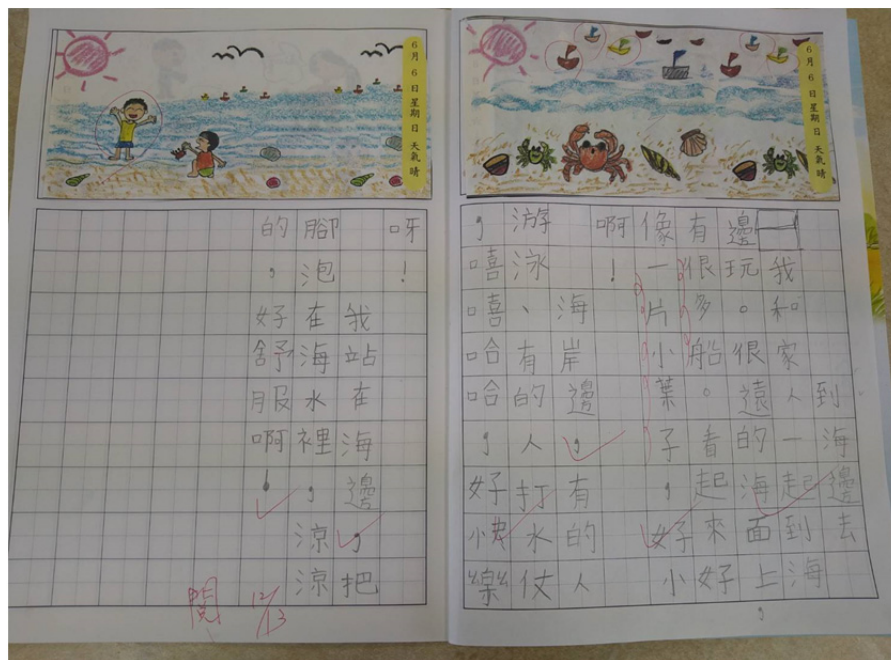 6月6日星期日 天氣晴
到海邊去
我和家人一起到海
邊玩。很遠的海面上，
有很多船。看起來好
像一片小葉子，好小
啊！
海岸邊，有的人
游泳、有的人打水仗
，嘻嘻哈哈，好快樂
6月6日星期日 天氣晴
呀！
我站在海邊，把
腳泡在海水裡，涼涼
的，好舒服啊！
閱 12/13